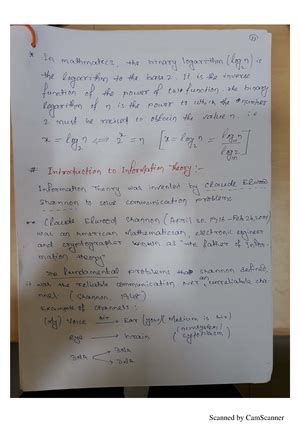 * In mathmatics, the binary logarithm (log₂n) is
the logarithm to the base 2. It is the inverse
function of the power of two function. The binary
logarithm of n is the power to which the number
2 must be raised to obtain the value n. i.e
x = log₂n ⟺ 2ˣ = n [x = log₂n = log n / log 2]
# Introduction to Information Theory :-
Information Theory was invented by Claude Elwood
Shannon to solve communication problems
** Claude Elwood Shannon (April 30, 1916 – Feb 24, 2001)
was an American mathematician, electronic engineer
and cryptographer known as "the father of infor-
mation theory"
The fundamental problems Shannon defined,
it was the reliable communication over unreliable cha-
nnel. (Shannon 1948)
Example of channels :-
Voice air→ Ear (your medium is air)
Eye → brain
DNA DNA
DNA
Scanned by CamScanner